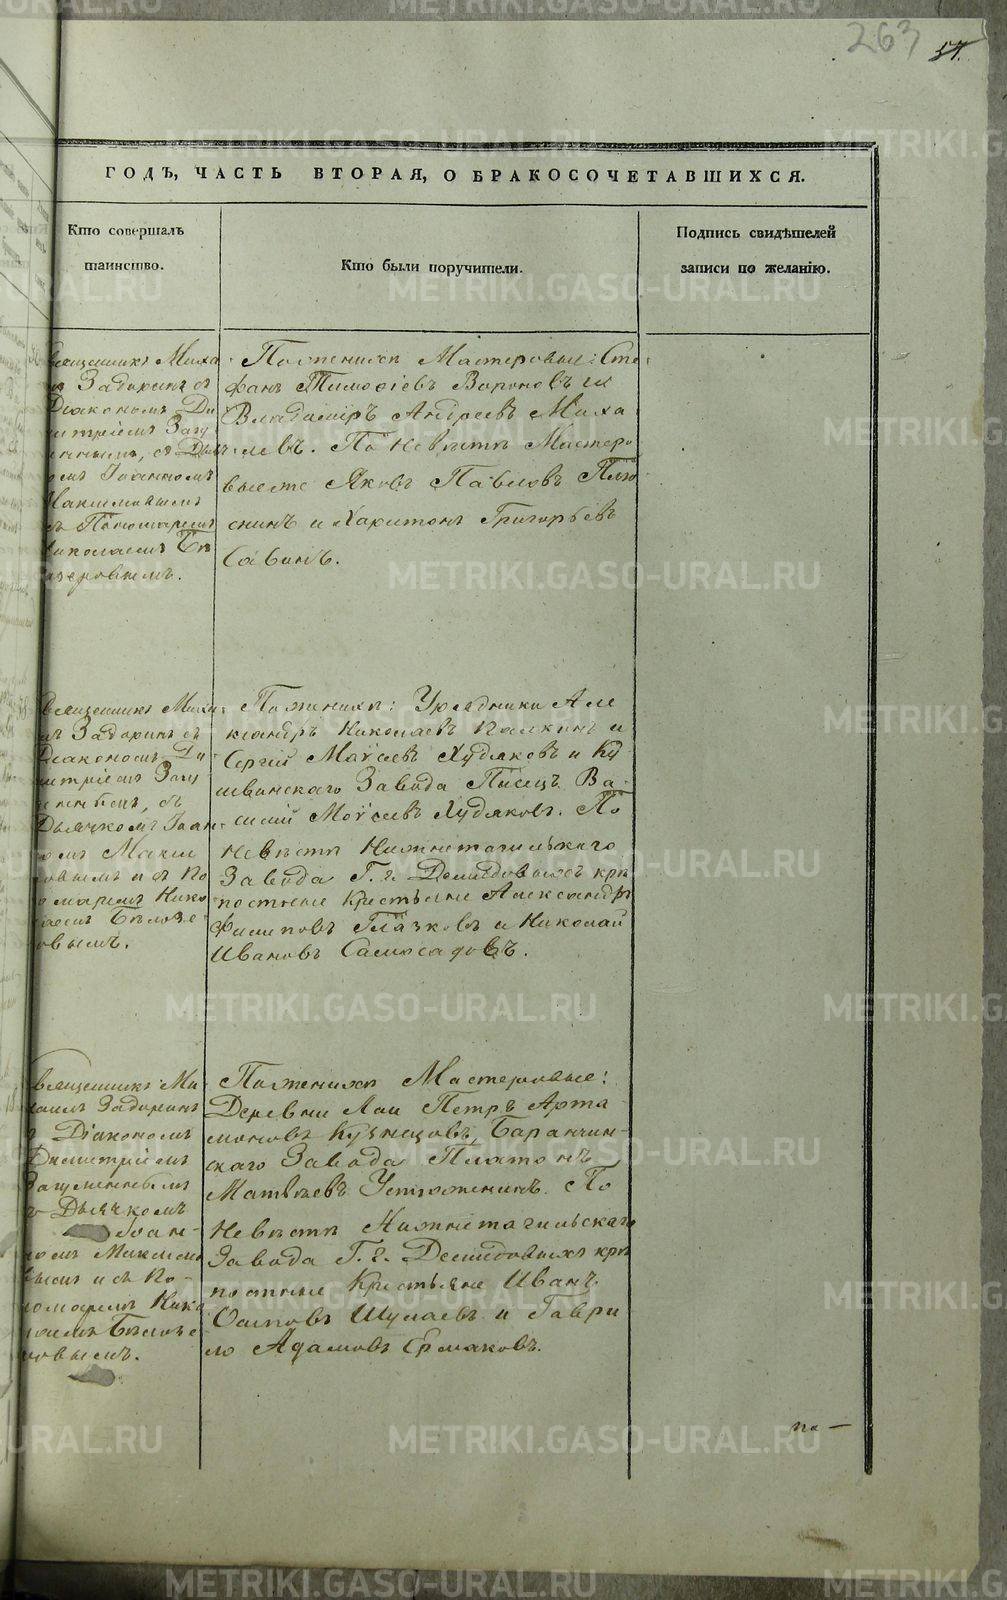 263
57.
ГОДЪ, ЧАСТЬ ВТОРАЯ, О БРАКОСОЧЕТАВШИХСЯ.
Кто совершалъ
таинство.
Кто были поручители.
Подпись свидѣтелей
записи по желанію.
Священникъ Миха
Задоринъ съ
Діакономъ Ди
митріемъ Загу
съ Дья
омъ Іоанномъ
Максимовымъ
Пономаремъ
Николаемъ Бѣ
озеровымъ.
По женихѣ Мастеровые: Сте
фанъ Тимоѳіевъ Вороновъ и
Владиміръ Андреевъ Миха
левъ. По невѣстѣ Мастеро
вые же Яковъ Павловъ
и Харитонъ Григорьевъ
Савинъ.
Священникъ Миха
илъ Задоринъ съ
Діакономъ Ди
митріемъ Загу
меннымъ, съ
Дьячкомъ Іоан
номъ Макси
мовымъ и съ По
номаремъ Нико
лаемъ Бѣлозе
ровымъ.
По женихѣ: Урядники Але
ксандръ Николаевъ Палкинъ и
Сергій Моѵсеевъ Худяковъ и Ку
швинскаго Завода Писецъ Ва
силій Моѵсеевъ Худяковъ. По
невѣстѣ Нижнетагильскаго
Завода Г. г. Демидовыхъ крѣ
постные Крестьяне Александръ
Филиповъ Глазковъ и Николай
Ивановъ Самосадовъ.
Священникъ Ми
хаилъ Задоринъ
съ Діакономъ
Димитріемъ
Загуменнымъ
съ Дьячкомъ
Іоан-
номъ Максимо
вымъ и съ По-
номаремъ Нико
лаемъ Бѣлозе
ровымъ.
По женихѣ Мастеровые:
Деревни Лаи Петръ Арта
моновъ Кузнецовъ, Баранчин-
скаго Завода Платонъ
Матвѣевъ Устюженинъ. По
невѣстѣ Нижнетагильскаго
Завода Г. г. Демидовыхъ крѣ
постные Крестьяне Иванъ
Осиповъ Шумаевъ и Гаври
ло Адамовъ Ермаковъ.
METRIKI.GASO-URAL.RU